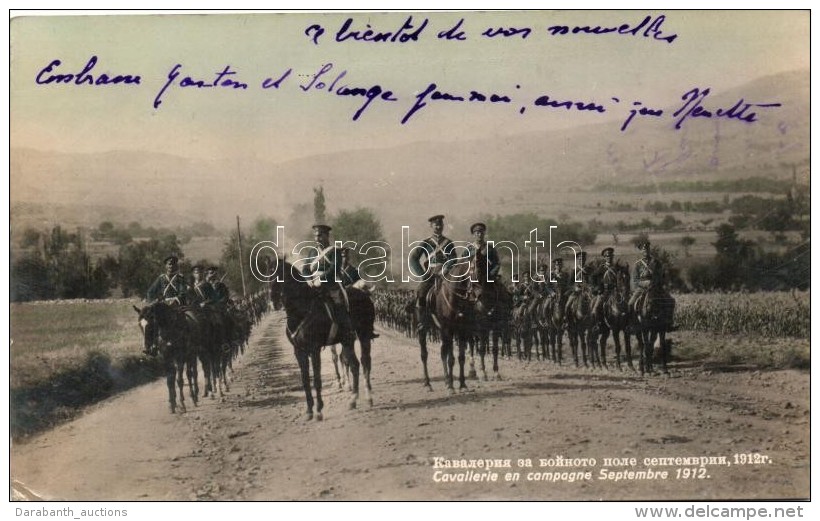 a bientôt de vos nouvelles
Embrasse Gaston et Solange
darabanth
Кавалерия за бойното поле септемврий, 1912г.
Cavallerie en campagne Septembre 1912.
Darabanth_auctions
www.delcampe.net